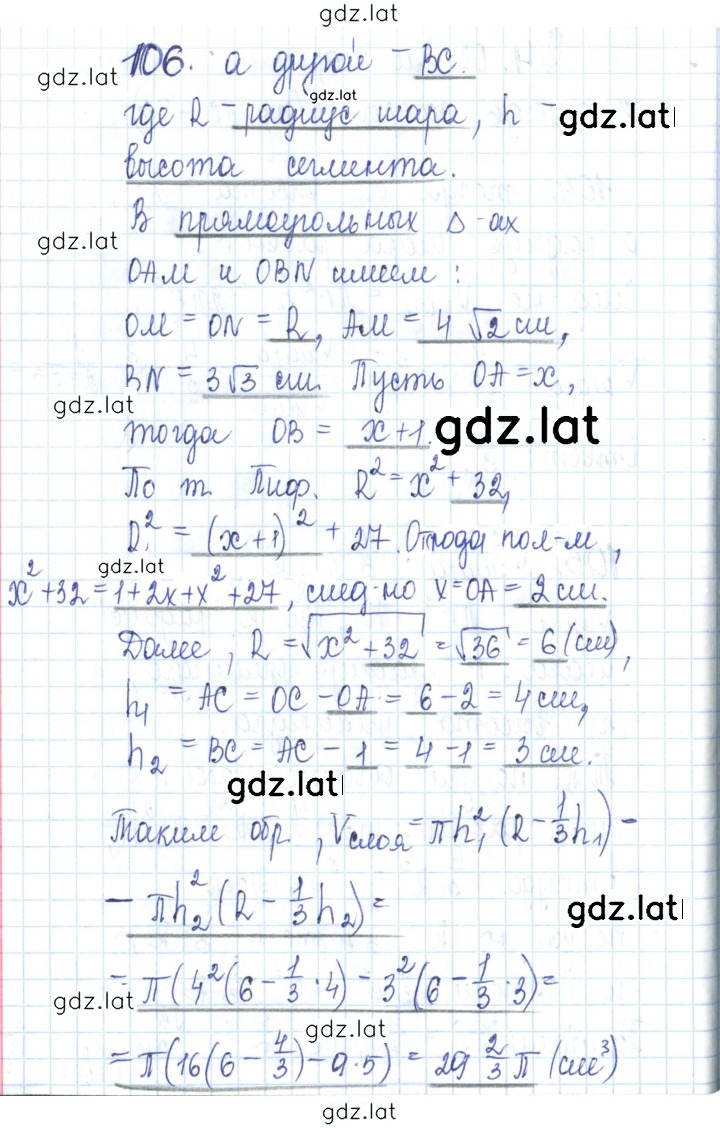 gdz.lat
106. а другой – BC.
gdz.lat
gdz.lat
где R – радиус шара, h –
gdz.lat
высота сегмента.
В прямоугольных Δ-ах
gdz.lat
OAM и OBN имеем:
OM = ON = R, AM = 4√2 см,
BN = 3√3 см. Пусть OA = x,
gdz.lat
тогда OB = x+1.
gdz.lat
По т. Пиф. R² = x² + 32,
R² = (x+1)² + 27. Отсюда пол-м,
gdz.lat
x²+32 = 1+2x+x²+27, след-но x=OA= 2 см.
Далее, R = √x²+32 = √36 = 6 (см),
h₁ = AC = OC – OA = 6 – 2 = 4 см,
h₂ = BC = AC – 1 = 4 – 1 = 3 см.
gdz.lat
Таким обр., Vслоя = πh₁²(R – 1/3 h₁) –
– πh₂²(R – 1/3 h₂) =
gdz.lat
= π(4²(6 – 1/3 · 4) – 3²(6 – 1/3 · 3) =
gdz.lat
gdz.lat
= π(16(6 – 4/3) – 9·5) = 29 2/3 π (см³)
gdz.lat